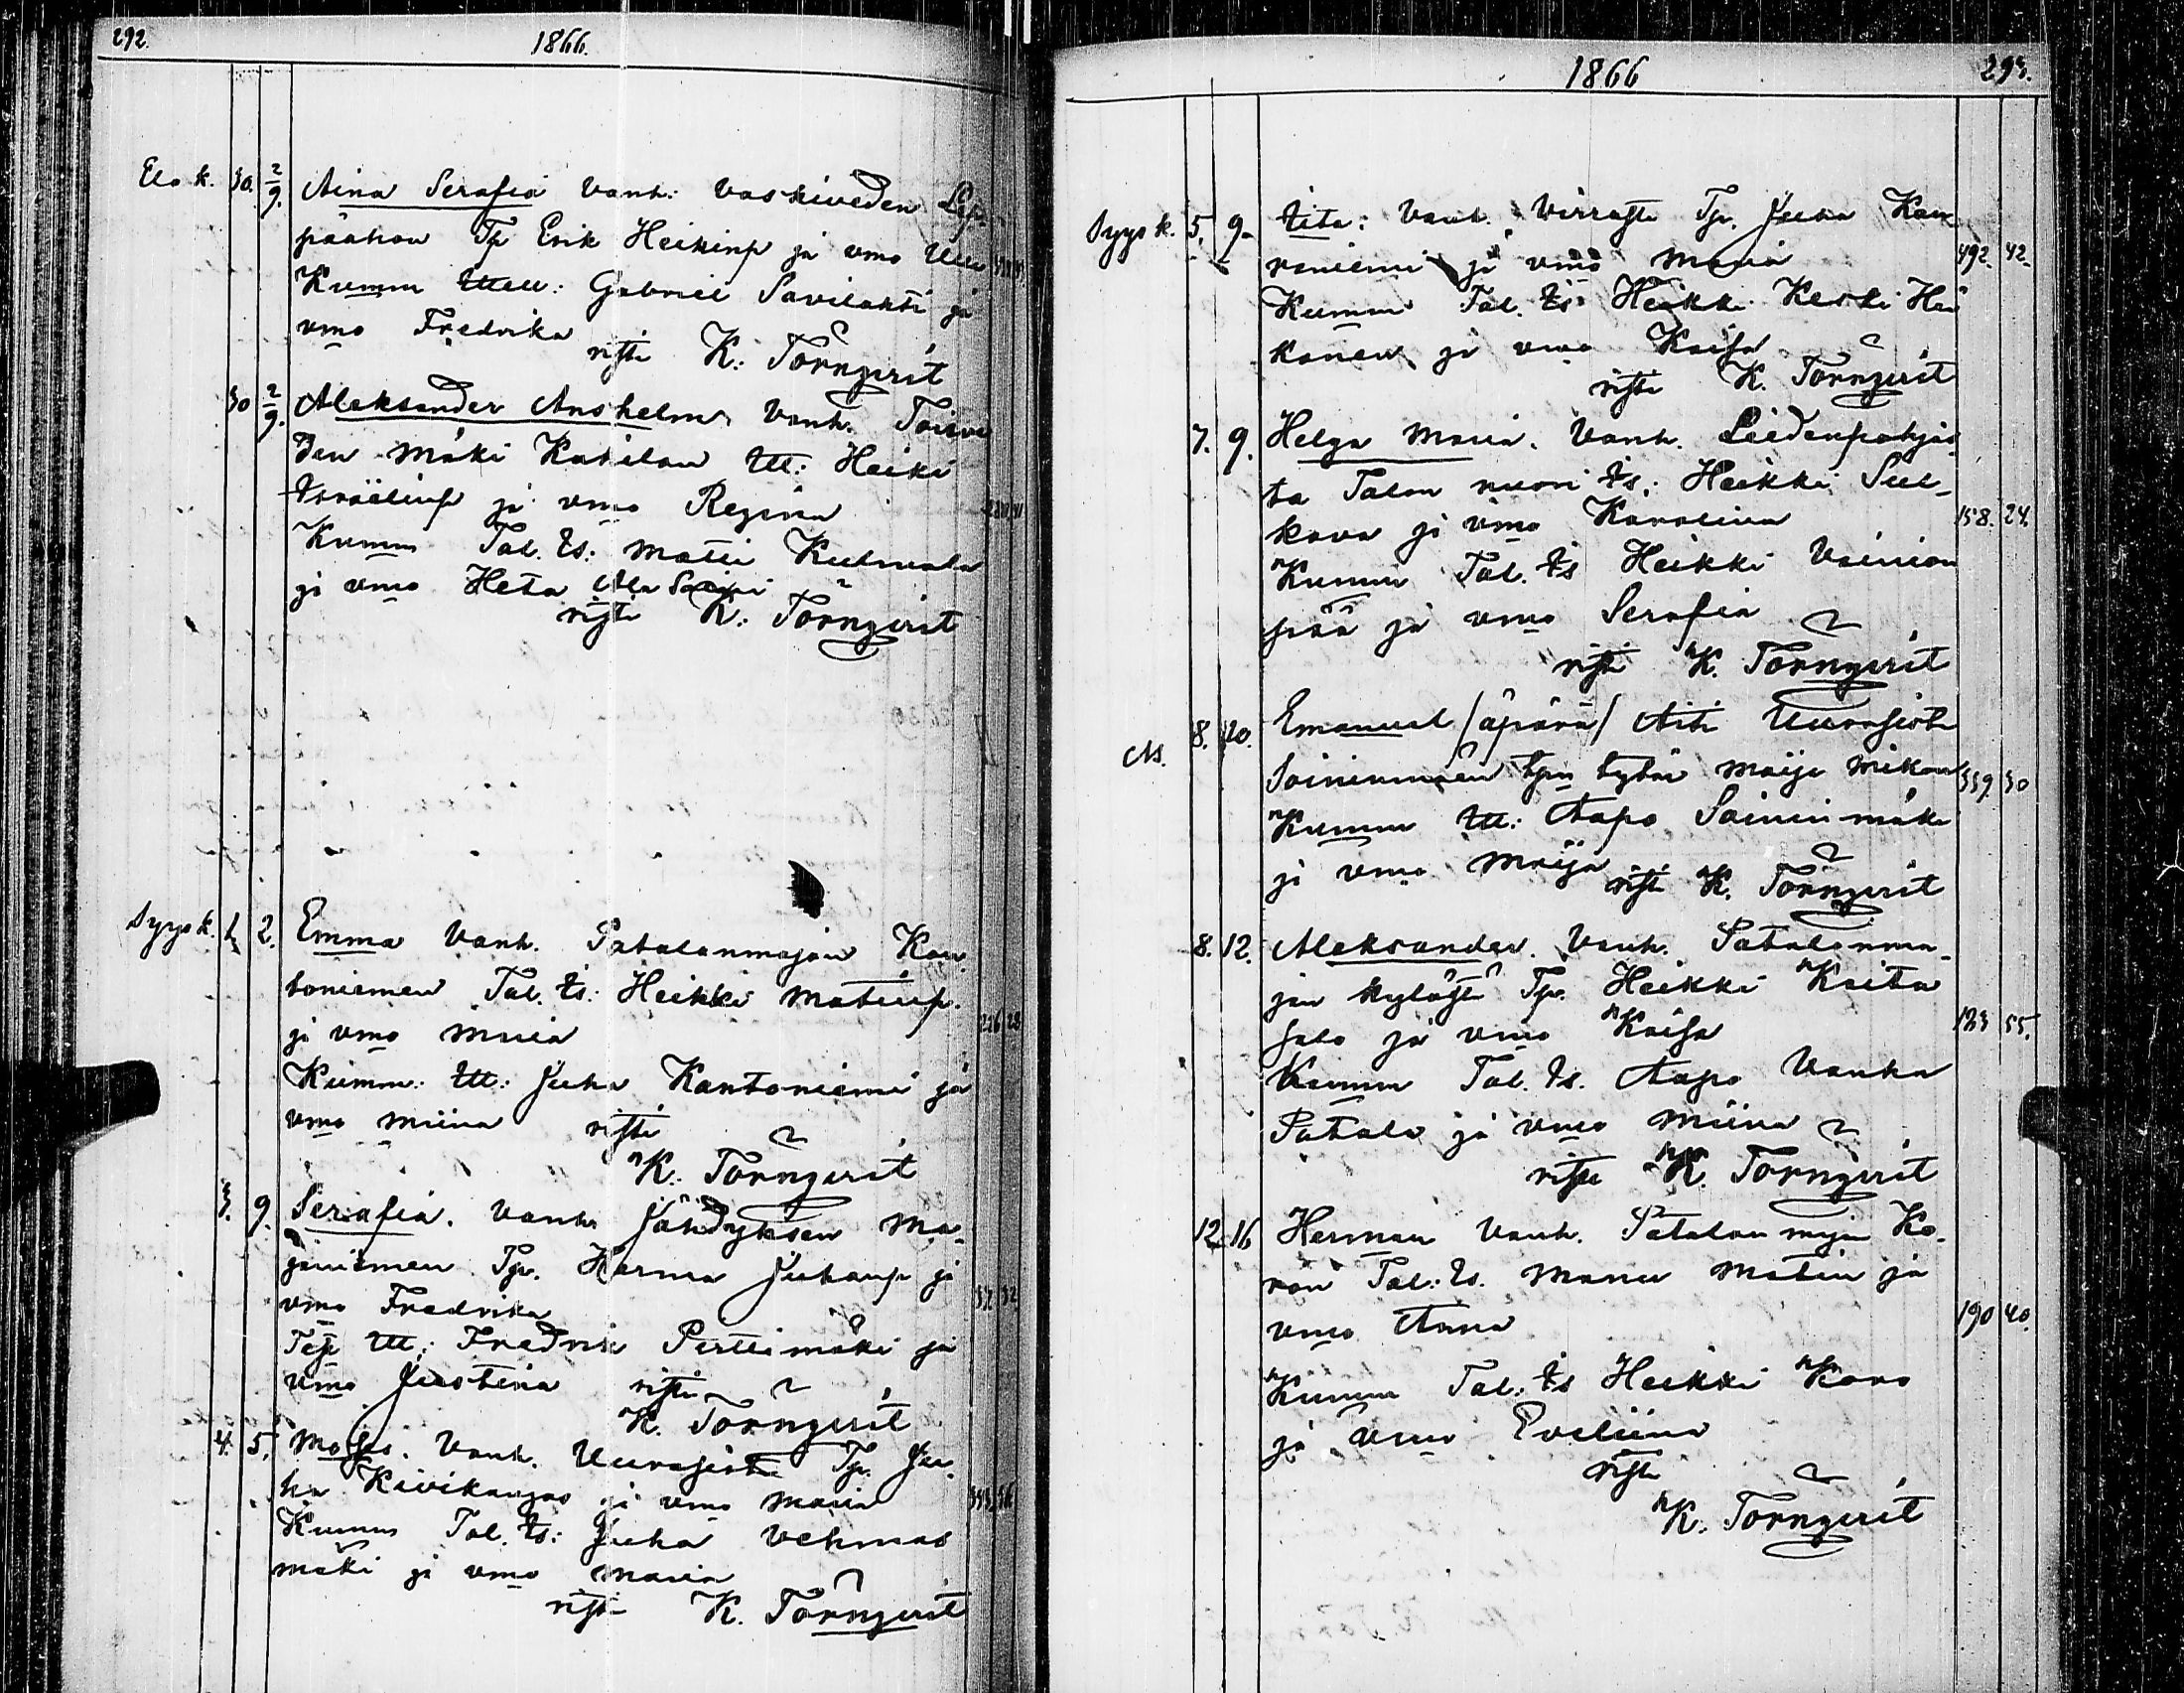 292.
1866.
Elo k. 30. 2/9. Aina Serafia Vanh: Vaskiveden Lep-
päahon Tp Erik Heikinp ja vmo Ulla
Kumm Itell: Gabriel Savilahti ja
vmo Fredrika
risti K: Törnqvist
30 2/9. Aleksander Anshelm. Vanh. Toisve
den Mäki Kakelan Itl: Heiki
Israelinp ja vmo Regina
Kumm Tal. Is: Matti Kulmala
ja vmo Heta Ala Soini
risti K: Törnqvist
Syys k. 1. 2. Emma Vanh. Patalanmajan Kan
toniemen Tal. Is: Heikki Matinp.
ja vmo Maria 226 28
Kumm: Itl: Juha Kantoniemi ja
vmo Miina risti
K. Törnqvist
3. 9. Serafia. Vanh Jähdyksen Ma-
janiemen Tp. Herma Juhanp ja
vmo Fredrika
Tep Itl: Fredrik Perttimäki ja
vmo Justina risti
K. Törnqvist
4. 5. Moses. Vanh. Uurasista Tp. Ju-
ha Kivikangas ja vmo Maria
Kumm Tal. Is: Juha Vehmas
mäki ja vmo Maria
risti K. Törnqvist
1866
293.
Syys k. 5. 9. Iita: Vanh. Virrasta Tp. Juha Kan
raniemi ja vmo Maria 492. 42.
Kumm Tal. Is: Heikki Keski Hei
konen ja vmo Kaisa
risti K. Törnqvist
7. 9. Helga Maria. Vanh. Liedenpohjas-
ta Talon nuori Is: Heikki Sul-
kava ja vmo Karoliina 158. 24.
Kumm Tal. Is Heikki Vainion
pää ja vmo Serafia
risti K. Törnqvist
As. 8. 20. Emanuel /äpärä/ Äiti Uurasista
Soininmäen tpn tytär Maija Mikon 339 30
Kumm Itl: Aapo Soininmäki
ja vmo Maija risti K. Törnqvist
8. 12. Aleksander. Vanh. Patalanma-
jan kylästä Tp. Heikki Kaita
salo ja vmo Kaisa 183 55.
Kumm Tal. Is. Aapo Vanha
Patala ja vmo Miina
risti K. Törnqvist
12. 16 Herman Vanh. Patalan majan Ko-
ron Tal: Is. Manu Matin ja
vmo Anna 190 40.
Kumm Tal. Is Heikki Koro
ja vmo Eveliina
risti
K. Törnqvist